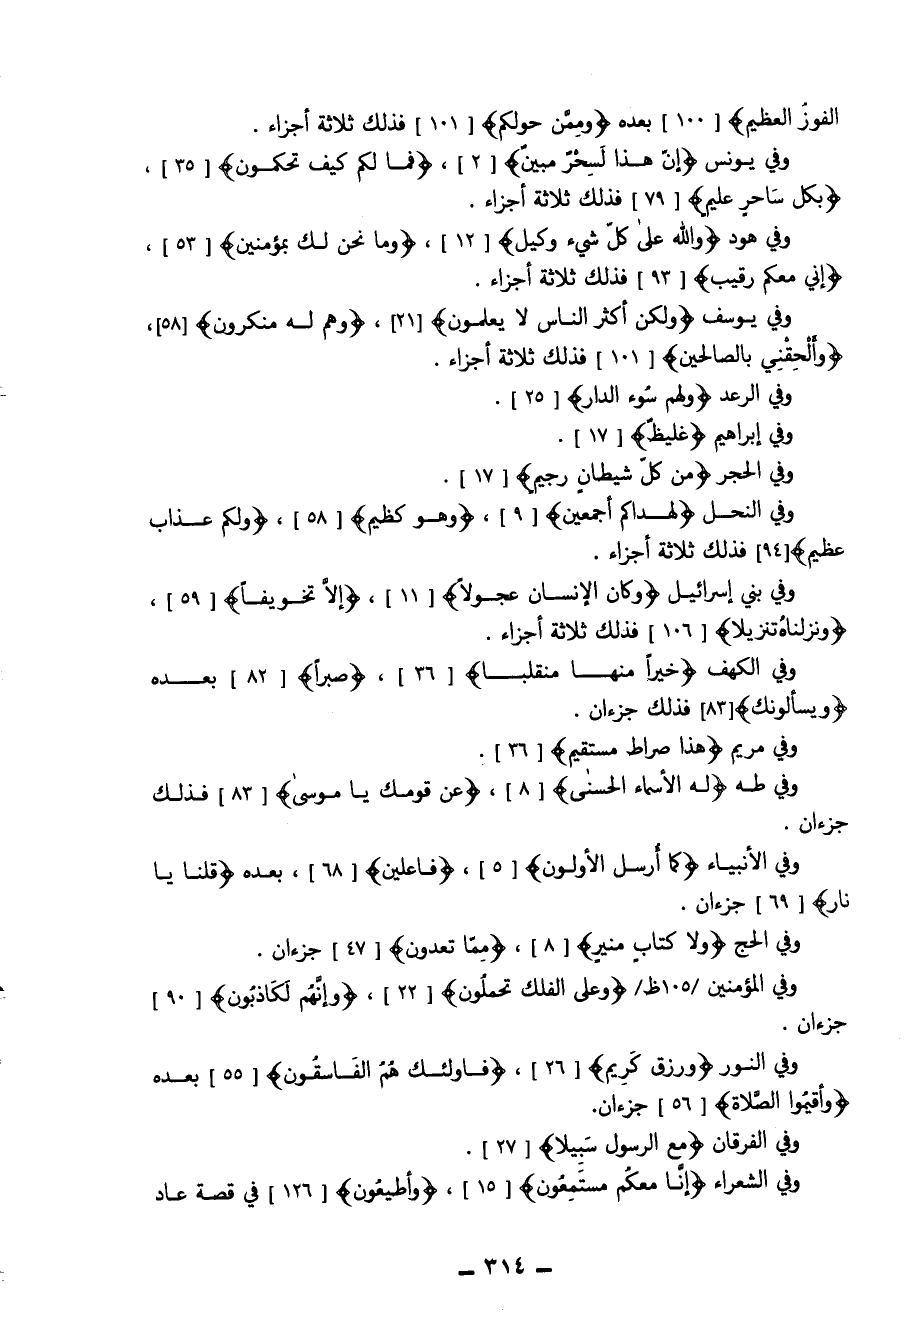 الفوزُ العظيم﴾ [ ١٠٠ ] بعده ﴿وممَّن حولكم﴾ [ ١٠١ ] فذلك ثلاثة أجزاء .
وفي يونس ﴿إنّ هذا لَسِحْرٌ مبينٌ﴾ [ ٢ ] ، ﴿فما لكم كيف تحكمون﴾ [ ٣٥ ] ،
﴿بكل سَاحرٍ عليم﴾ [ ٧٩ ] فذلك ثلاثة أجزاء .
وفي هود ﴿والله علىٰ كلّ شيء وكيل﴾ [ ١٢ ] ، ﴿وما نحن لك بمؤمنين﴾ [ ٥٣ ] ،
﴿إني معكم رقيب﴾ [ ٩٣ ] فذلك ثلاثة أجزاء .
وفي يوسف ﴿ولكن أكثر الناس لا يعلمون﴾ [٢١] ، ﴿وهم له منكرون﴾ [٥٨]،
﴿وأَلْحِقْنِي بالصالحين﴾ [ ١٠١ ] فذلك ثلاثة أجزاء .
وفي الرعد ﴿ولهم سُوء الدار﴾ [ ٢٥ ] .
وفي إبراهيم ﴿غليظٌ﴾ [ ١٧ ] .
وفي الحجر ﴿من كلّ شيطانٍ رجيم﴾ [ ١٧ ] .
وفي النحل ﴿لهداكم أجمعين﴾ [ ٩ ] ، ﴿وهو كظيم﴾ [ ٥٨ ] ، ﴿ولكم عذاب
عظيم﴾[٩٤] فذلك ثلاثة أجزاء .
وفي بني إسرائيل ﴿وكان الإنسان عجولاً﴾ [ ١١ ] ، ﴿إلاَّ تخويفاً﴾ [ ٥٩ ] ،
﴿ونزلناهُ تنزيلا﴾ [ ١٠٦ ] فذلك ثلاثة أجزاء .
وفي الكهف ﴿خيراً منها منقلبا﴾ [ ٣٦ ] ، ﴿صبراً﴾ [ ٨٢ ] بعده
﴿ويسألونك﴾[٨٣] فذلك جزءان .
وفي مريم ﴿هذا صراط مستقيم﴾ [ ٣٦ ] .
وفي طه ﴿له الأسماء الحسنىٰ﴾ [ ٨ ] ، ﴿عن قومك يا موسىٰ﴾ [ ٨٣ ] فذلك
جزءان .
وفي الأنبياء ﴿كما أُرسل الأولون﴾ [ ٥ ] ، ﴿فاعلين﴾ [ ٦٨ ] ، بعده ﴿قلنا يا
نار﴾ [ ٦٩ ] جزءان .
وفي الحج ﴿ولا كتابٍ منيرٍ﴾ [ ٨ ] ، ﴿ممّا تعدون﴾ [ ٤٧ ] جزءان .
وفي المؤمنين /١٠٥ظ/ ﴿وعلى الفلك تحملُون﴾ [ ٢٢ ] ، ﴿وإنَّهُم لَكَاذبُون﴾ [ ٩٠ ]
جزءان .
وفي النور ﴿ورزق كَرِيم﴾ [ ٢٦ ] ، ﴿فأولئك هُمُ الفَاسقُون﴾ [ ٥٥ ] بعده
﴿وأقيمُوا الصَّلاة﴾ [ ٥٦ ] جزءان.
وفي الفرقان ﴿مع الرسول سَبِيلا﴾ [ ٢٧ ] .
وفي الشعراء ﴿إنَّا معكُم مستَمِعُون﴾ [ ١٥ ] ، ﴿وأطيعُون﴾ [ ١٢٦ ] في قصة عاد
_ ٣١٤ _